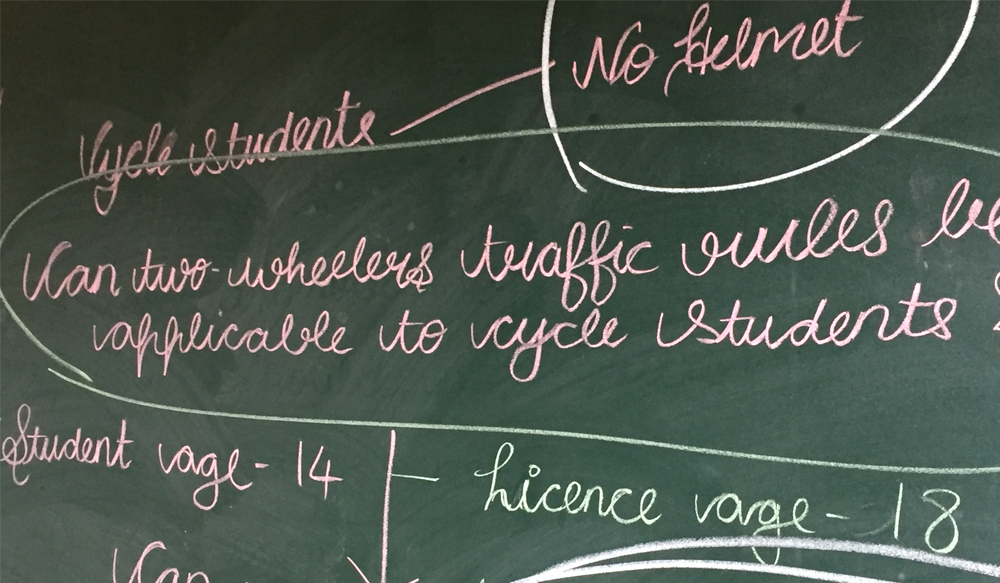 No Helmet
Cycle students
Can two-wheelers traffic rules be
applicable to cycle students
Student age - 14
Licence age - 18
Can